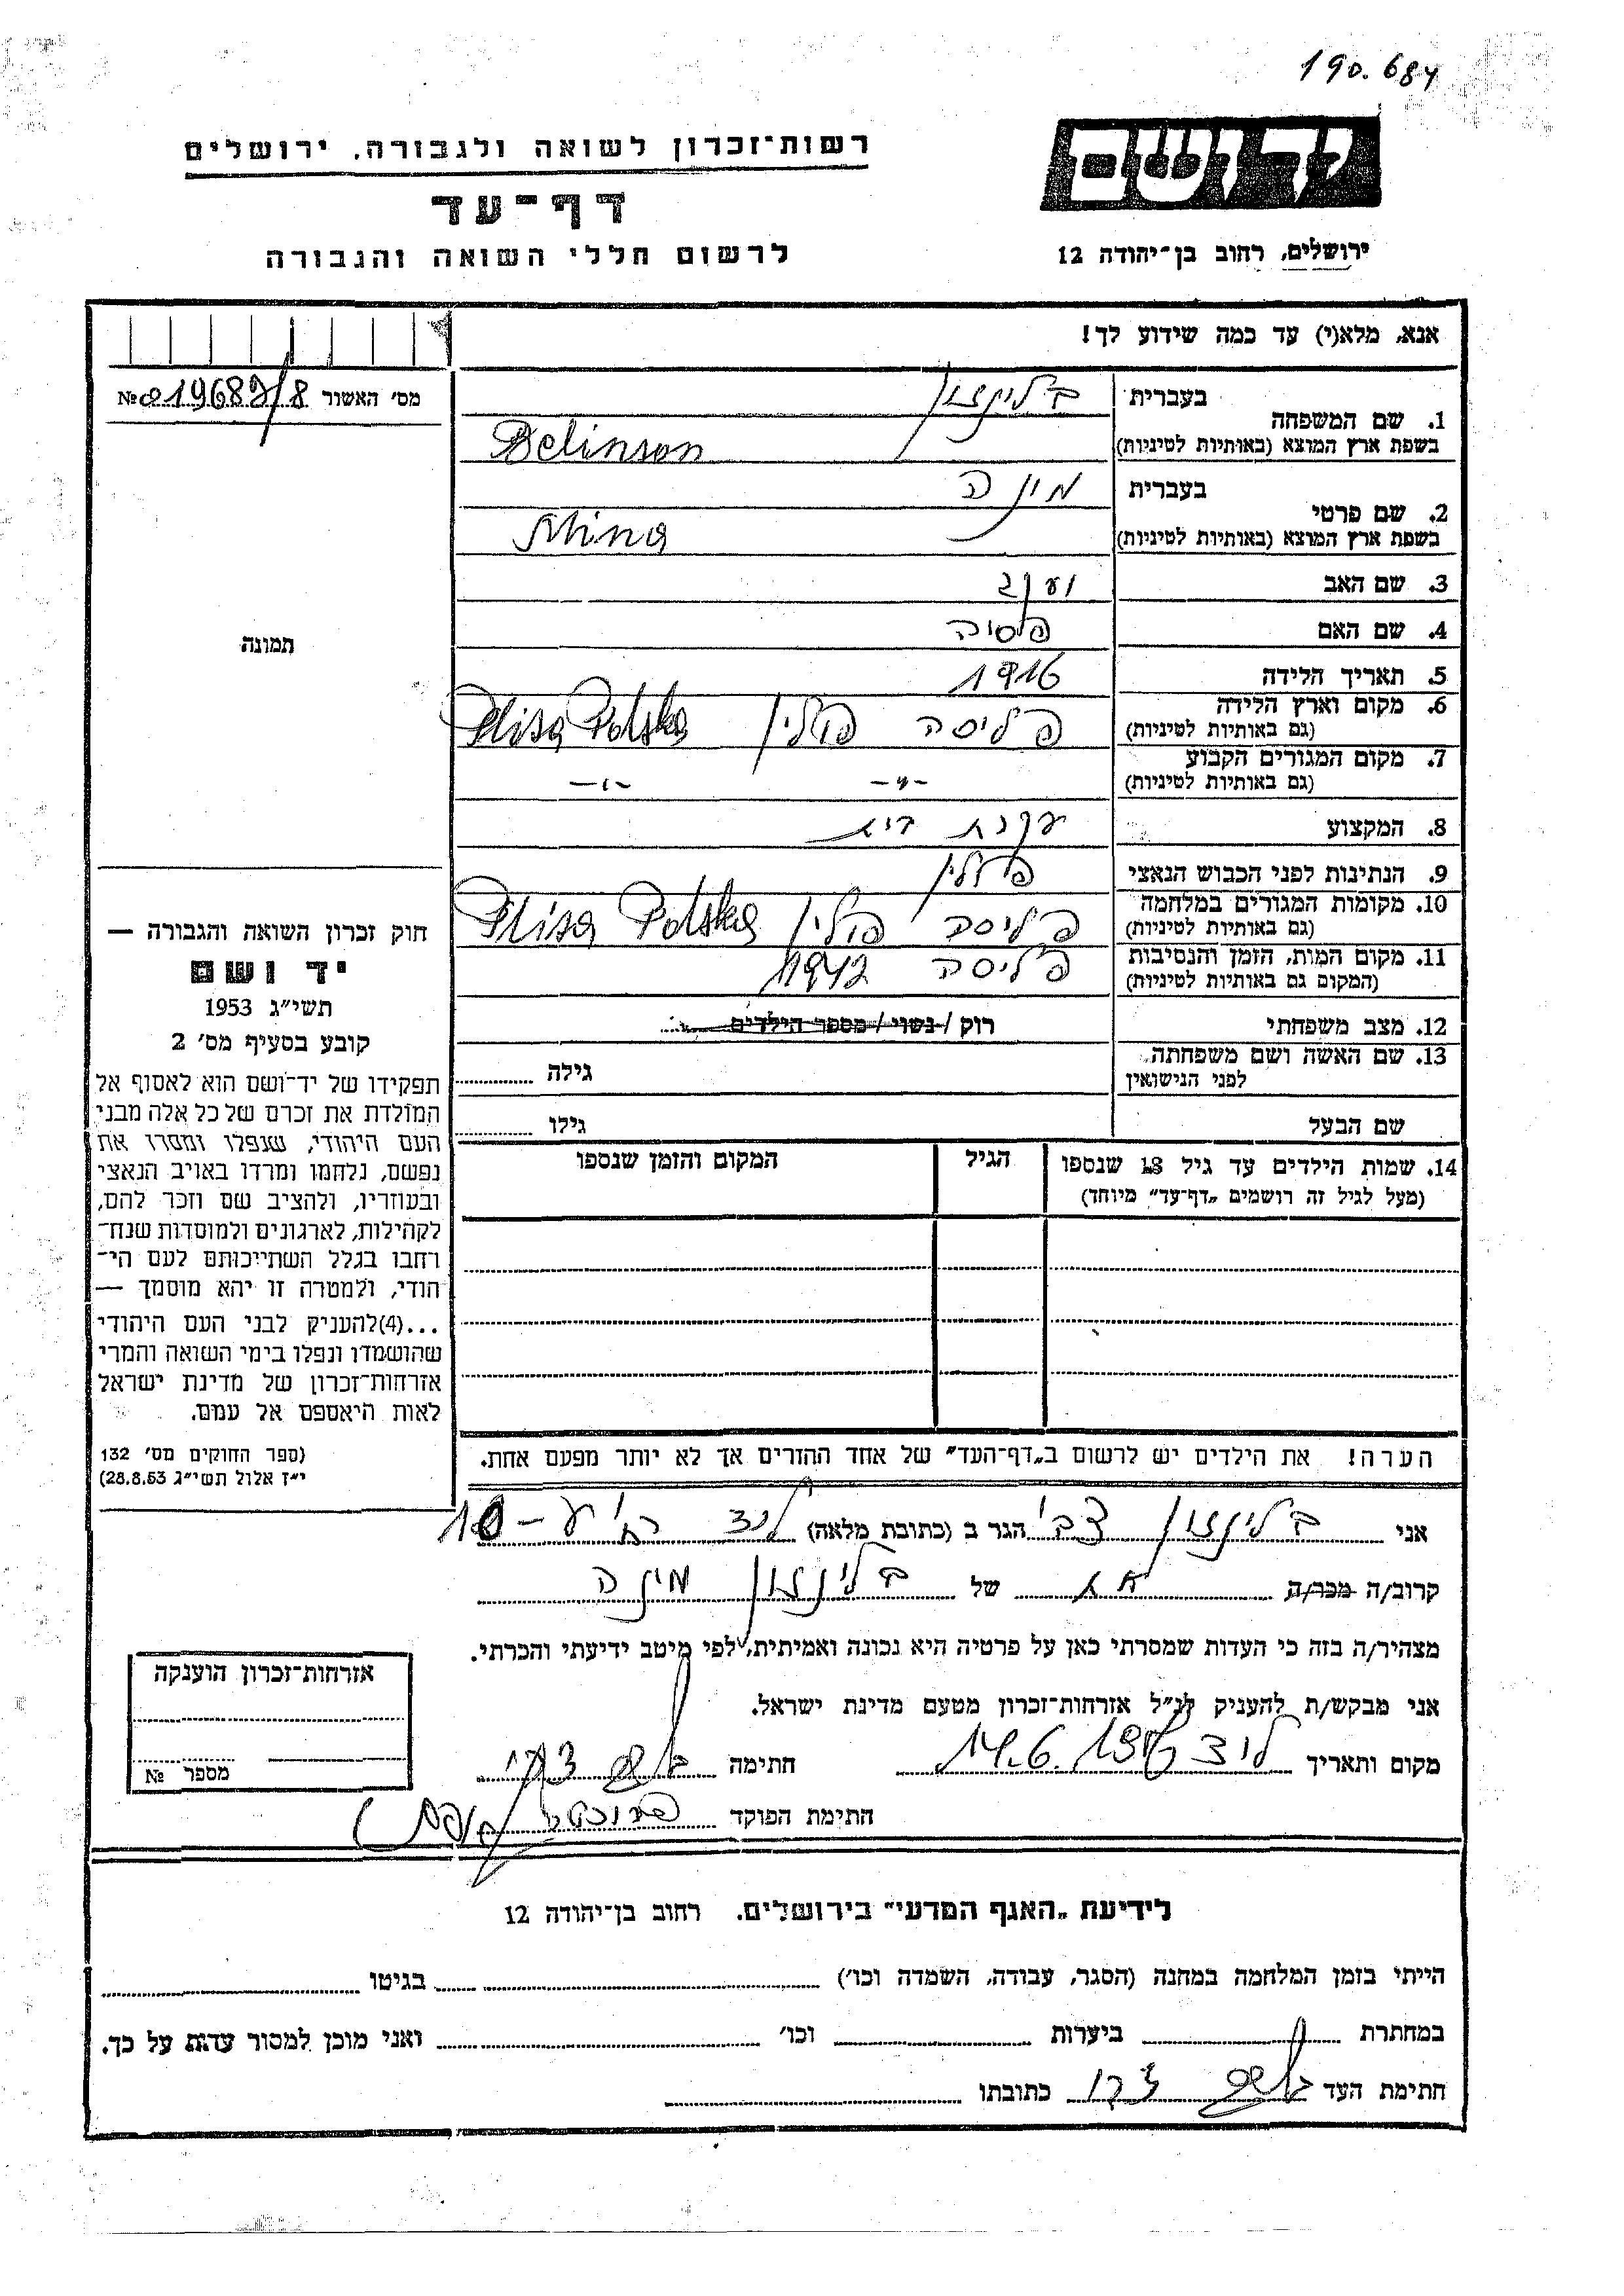 190.684
ידושם
רשות־זכרון לשואה ולגבורה, ירושלים
דף־עד
ירושלים, רחוב בן־יהודה 12
לרשום חללי השואה והגבורה
אנא, מלא(י) עד כמה שידוע לך!
מס׳ האשור №
1. שם המשפחה
בעברית בלינזון
בשפת ארץ המוצא (באותיות לטיניות) Belinson
2. שם פרטי
בעברית מינה
בשפת ארץ המוצא (באותיות לטיניות) Mina
3. שם האב יעקב
4. שם האם פסיה
תמונה
5. תאריך הלידה 1916
6. מקום וארץ הלידה פליסה פולין Plisa Polska
(גם באותיות לטיניות)
7. מקום המגורים הקבוע
(גם באותיות לטיניות) -״- -״-
8. המקצוע עקרת בית
9. הנתינות לפני הכבוש הנאצי פולין
10. מקומות המגורים במלחמה
(גם באותיות לטיניות) פליסה פולין Plisa Polska
11. מקום המות, הזמן והנסיבות
(המקום גם באותיות לטיניות) פליסה 1942
12. מצב משפחתי רוק / נשוי / מספר הילדים
13. שם האשה ושם משפחתה
לפני הנישואין גילה
שם הבעל גילו
14. שמות הילדים עד גיל 18 שנספו הגיל המקום והזמן שנספו
(מעל לגיל זה רושמים „דף־עד״ מיוחד)
הערה! את הילדים יש לרשום ב„דף־העד״ של אחד ההורים אך לא יותר מפעם אחת.
חוק זכרון השואה והגבורה —
יד ושם
תשי״ג 1953
קובע בסעיף מס׳ 2
תפקידו של יד־ושם הוא לאסוף אל
המולדת את זכרם של כל אלה מבני
העם היהודי, שנפלו ומסרו את
נפשם, נלחמו ומרדו באויב הנאצי
ובעוזריו, ולהציב שם וזכר להם,
לקהילות, לארגונים ולמוסדות שנח־
רבו בגלל השתייכותם לעם הי־
הודי, ולמטרה זו יהא מוסמך —
...(4)להעניק לבני העם היהודי
שהושמדו ונפלו בימי השואה והמרי
אזרחות־זכרון של מדינת ישראל
לאות היאספם אל עמם.
(ספר החוקים מס׳ 132
י״ז אלול תשי״ג 28.8.53)
אני בלינזון צבי הגר ב (כתובת מלאה)
קרוב/ה מכר/ה אח של בלינזון מינה
מצהיר/ה בזה כי העדות שמסרתי כאן על פרטיה היא נכונה ואמיתית, לפי מיטב ידיעתי והכרתי.
אני מבקש/ת להעניק לנ״ל אזרחות־זכרון מטעם מדינת ישראל.
מקום ותאריך חתימה
חתימת הפוקד
אזרחות־זכרון הוענקה
מספר №
לידיעת „האגף המדעי״ בירושלים. רחוב בן־יהודה 12
הייתי בזמן המלחמה במחנה (הסגר, עבודה, השמדה וכו׳) בגיטו
במחתרת ביערות וכו׳ ואני מוכן למסור עדות על כך.
חתימת העד כתובתו